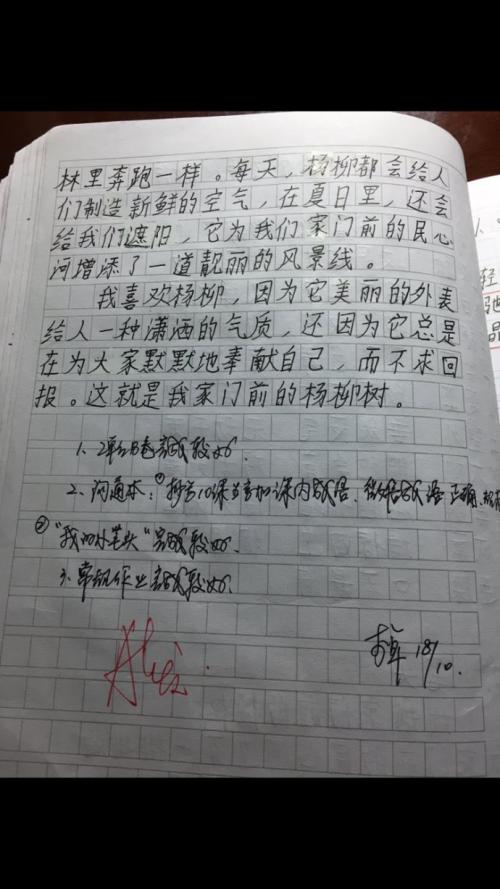 林里奔跑一样。每天，杨柳都会给人
们制造新鲜的空气，在夏日里，还会
给我们遮阳，它为我们家门前的民心
河增添了一道靓丽的风景线。
我喜欢杨柳，因为它美丽的外表
给人一种潇洒的气质，还因为它总是
在为大家默默地奉献自己，而不求回
报。这就是我家门前的杨柳树。
1、2单元B卷完成较好.
2、沟通本：①抄写10课 课内成语、 成语 正确、
②"我的小笔头"完成较好.
3、常规作业完成较好.
18/10.
轻
品